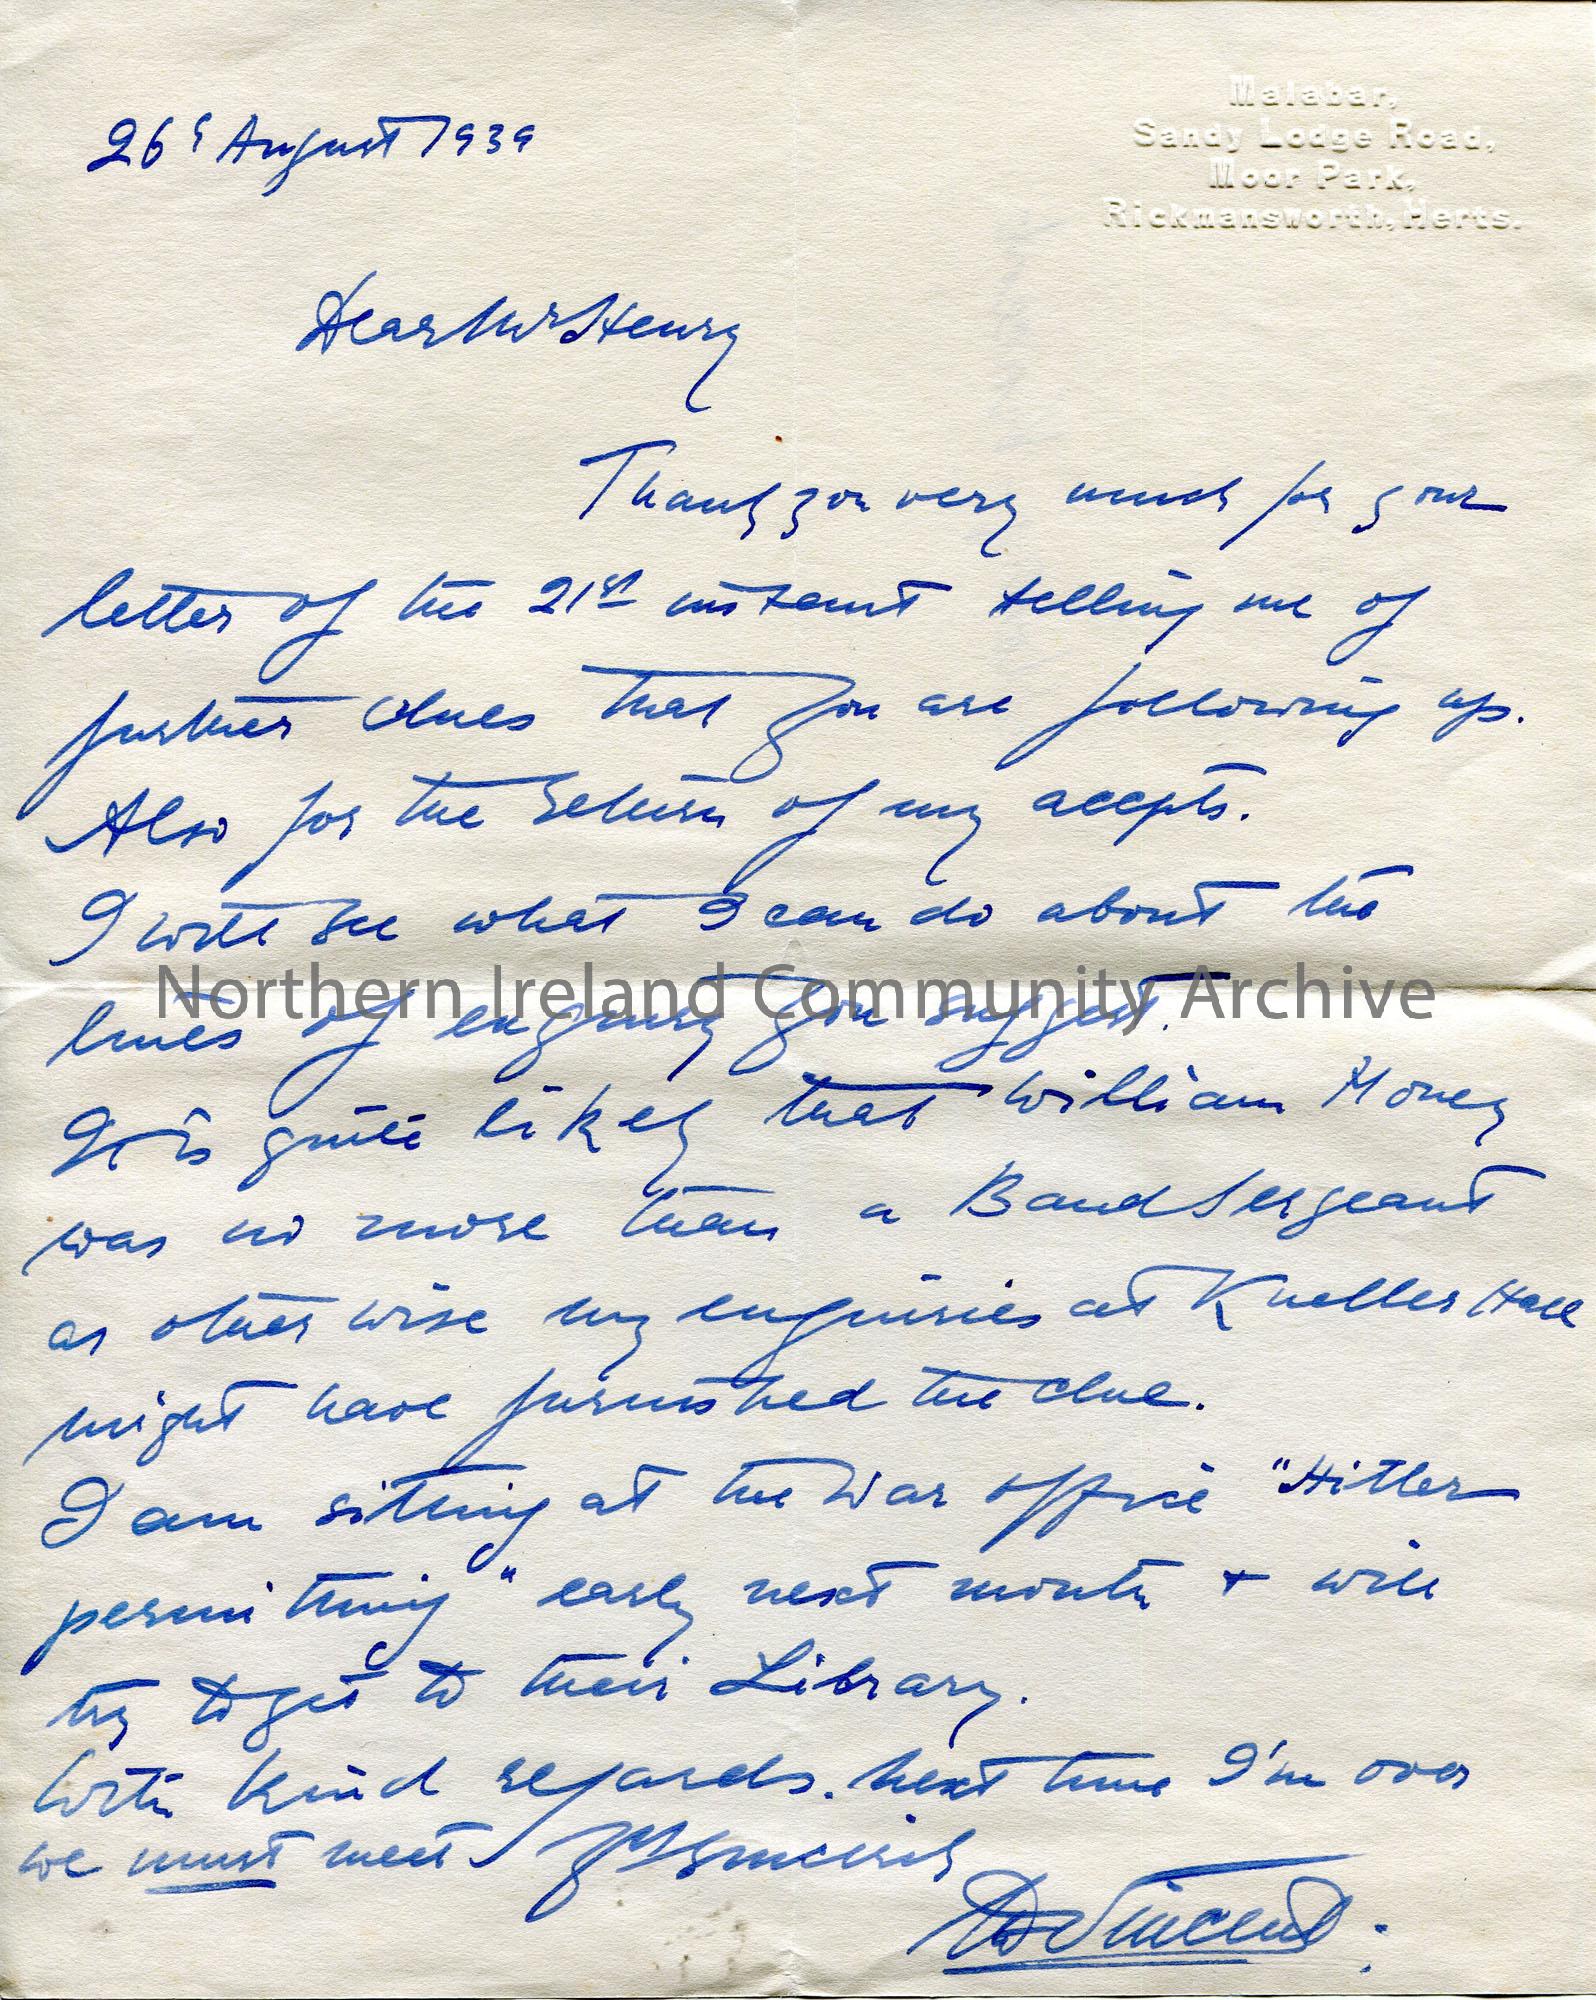 Malabar,
Sandy Lodge Road,
Moor Park,
Rickmansworth, Herts.
26th August 1939
Dear Mr Henry
Thank you very much for your
letter of the 21st instant telling me of
further clues that you are following up.
Also for the return of my accpts.
I will see what I can do about the
lines of enquiry you suggest.
Northern Ireland Community Archive
It is quite likely that William Money
was no more than a Band Sergeant
as otherwise my enquiries at Kneller Hall
might have furnished the clue.
I am sitting at the War Office "Hitler
permitting" early next month + will
try to get to their Library.
With kind regards. Next time I'm over
we must meet Yrs sincerely
Vincent